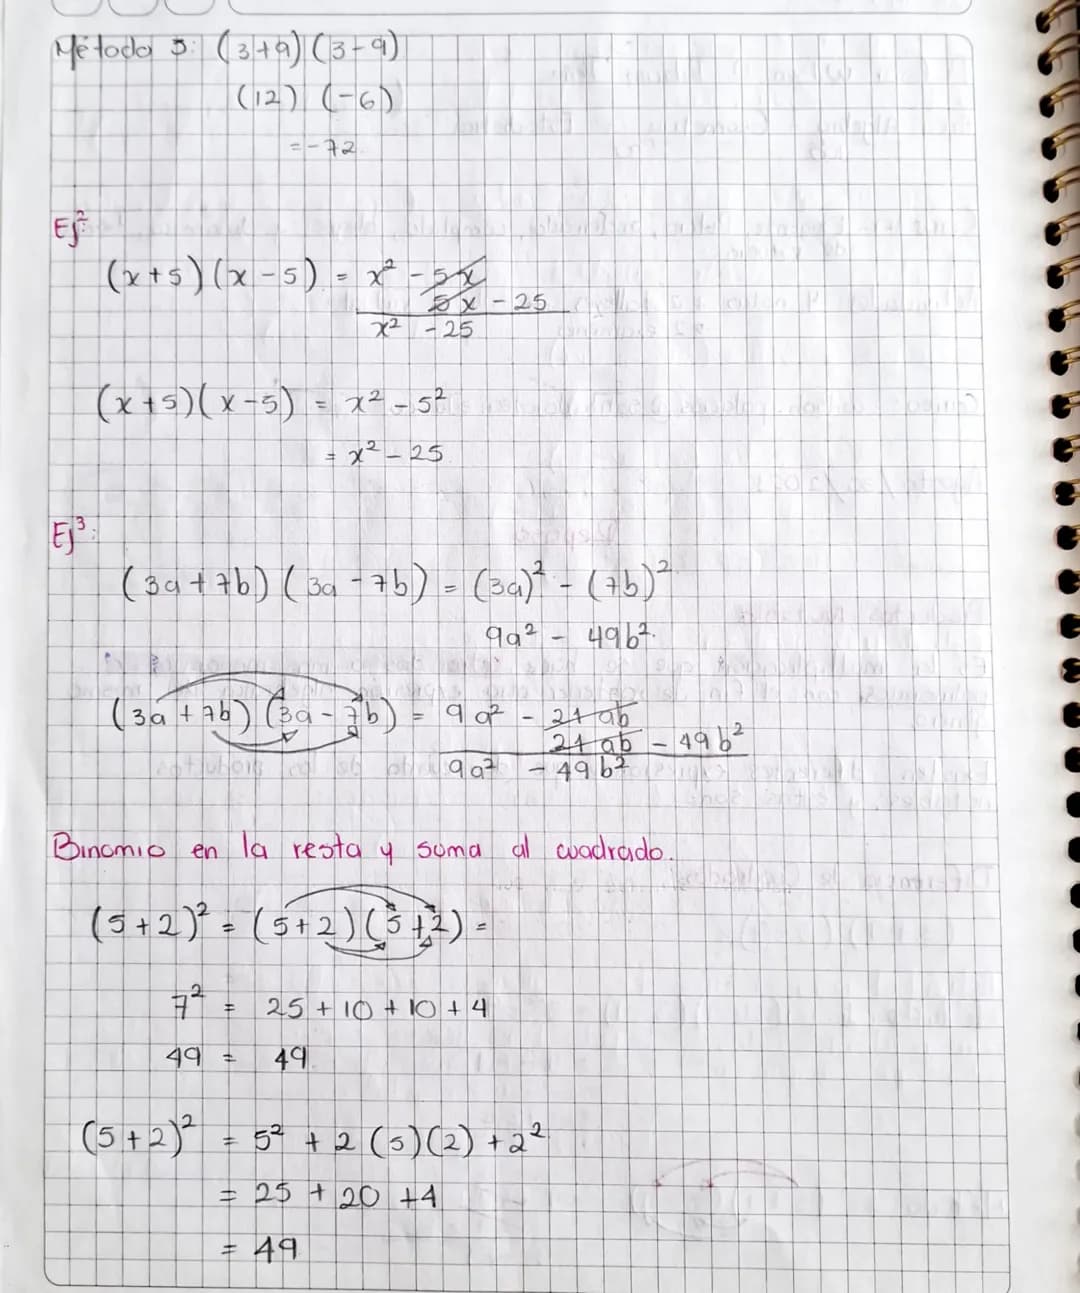 Método 3: (3+9)(3-9)
(12) (-6)
=-72
Ej²:
(x+5)(x-5) = x² - 5x
5x - 25
x² - 25
(x+5)(x-5) = x² - 5²
= x² - 25
Ej³:
(3a+7b)(3a-7b) = (3a)² - (7b)²
9a² - 49b².
(3a+7b)(3a-7b) = 9a² - 21ab
21ab - 49b²
9a² - 49b²
Binomio en la resta y suma al cuadrado.
(5+2)² = (5+2)(5+2) =
7² = 25+10+10+4
49 = 49
(5+2)² = 5² + 2(5)(2) + 2²
= 25 + 20 +4
= 49